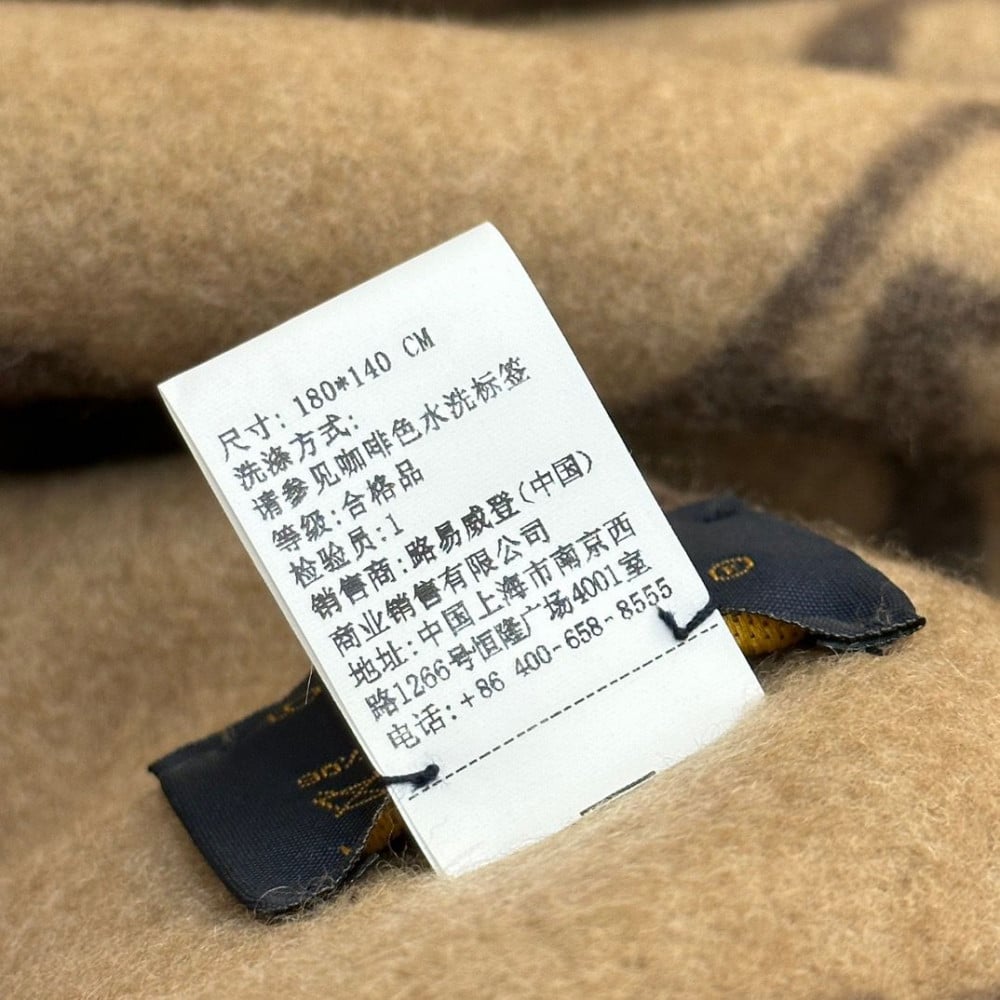 尺寸: 180*140 CM
洗涤方式:
请参见咖啡色水洗标签
等级:合格品
检验员:1
销售商:路易威登(中国)
商业销售有限公司
地址:中国上海市南京西
路1266号恒隆广场4001室
电话:+86 400-658-8555